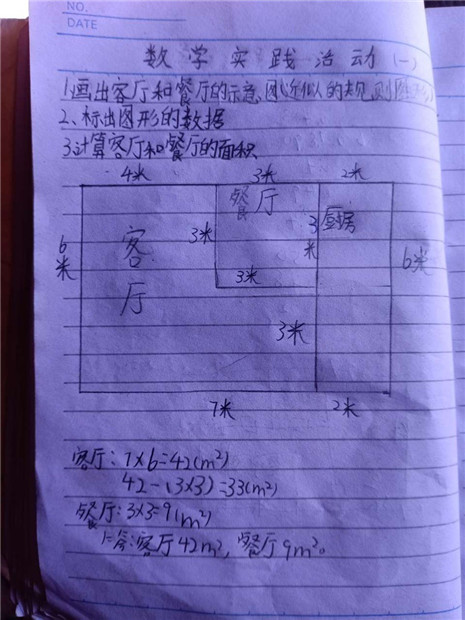 NO.
DATE
数学实践活动(一)
1.画出客厅和餐厅的示意图(近似的规则图形)
2、标出图形的数据
3.计算客厅和餐厅的面积
4米 3米 2米
餐厅
厨房
客厅
3米
3米
6米
6米
3米
3米
7米 2米
客厅:7×6=42(m²)
42-(3×3)=33(m²)
餐厅:3×3=9(m²)
答:客厅42m²,餐厅9m²。